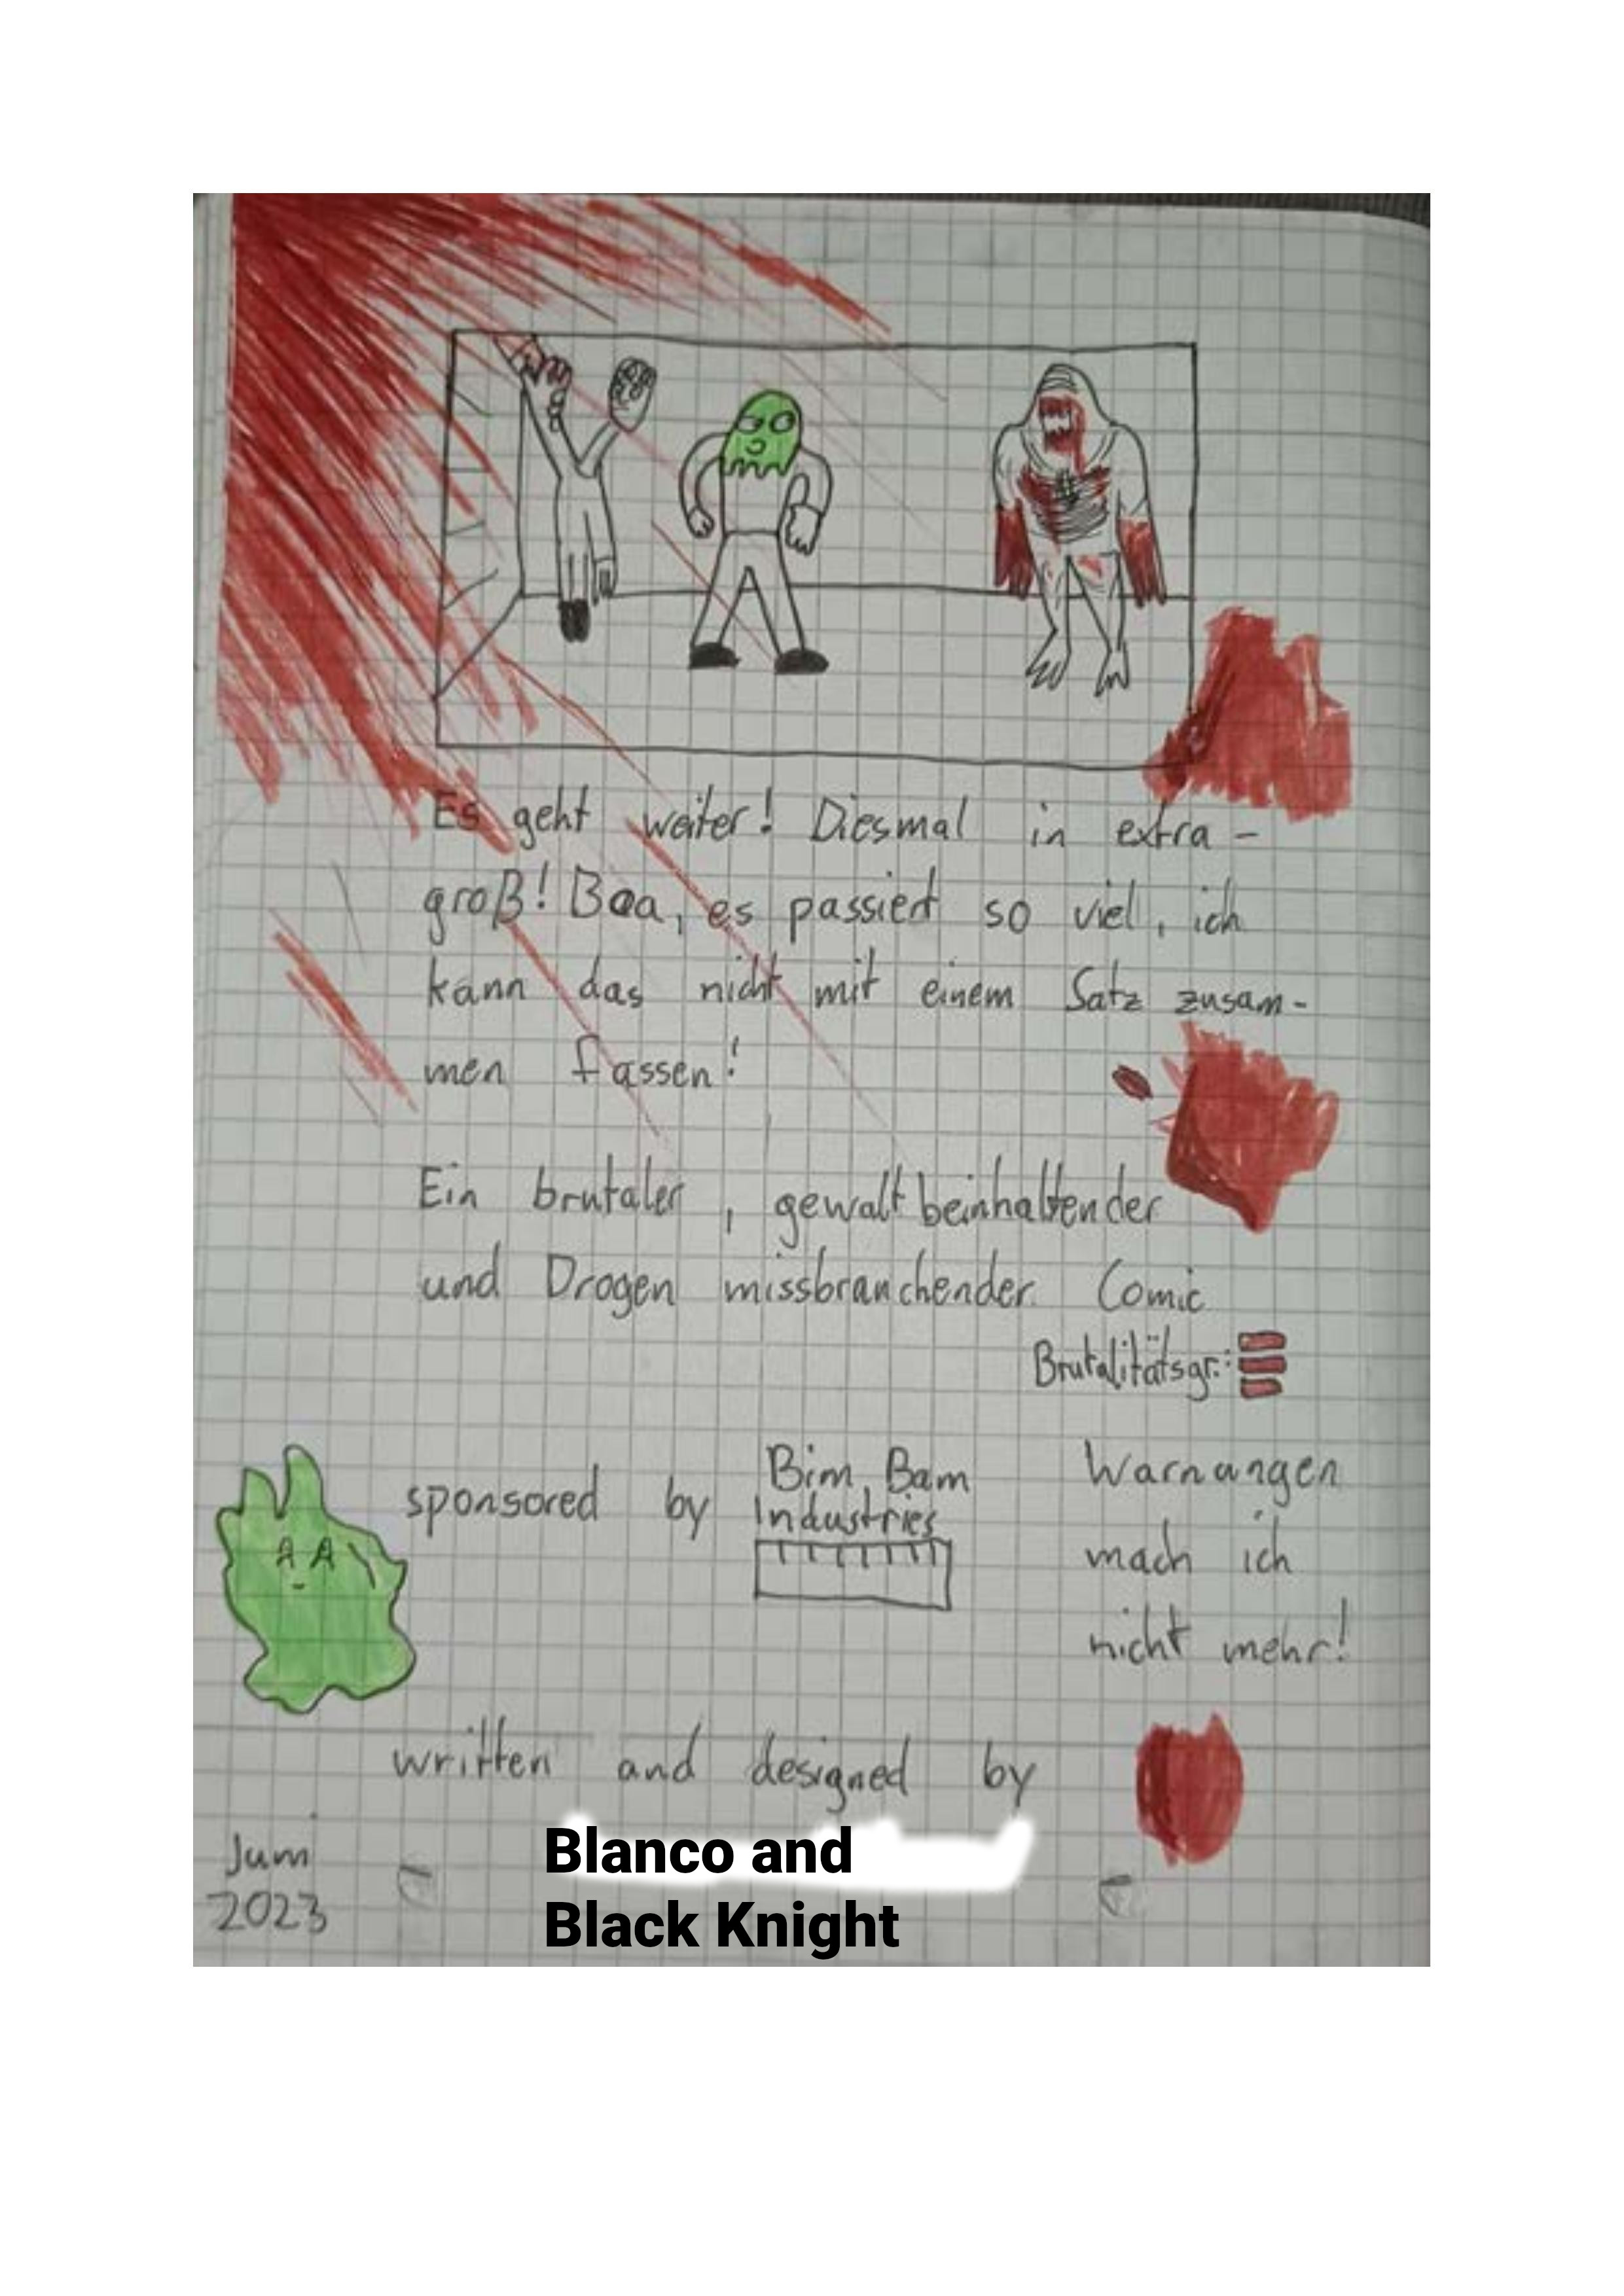 Es geht weiter! Diesmal in extra-
groß! Boa, es passiert so viel, ich
kann das nicht mit einem Satz zusam-
men fassen!
Ein brutaler, gewaltbeinhaltender
und Drogen missbrauchender Comic
Brutalitätsgr.:
sponsored by Bim Bam
Industries
Warnungen
mach ich
nicht mehr!
written and designed by
Blanco and
Black Knight
Juni
2023